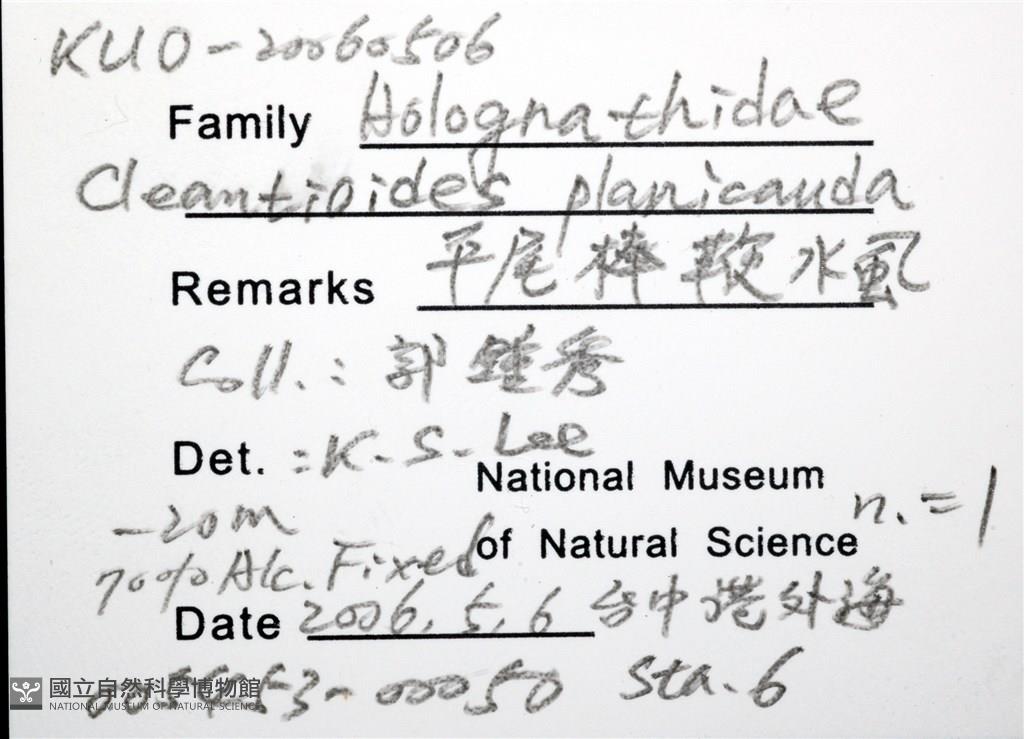 KUO-20060506
Family Holognathidae
Cleantioides planicauda
Remarks 平尾棒鞭水虱
Coll.: 郭鍾秀
Det. : K. S. Lee
National Museum
-20m
of Natural Science n.=1
70% Alc. Fixed
Date 2006. 5. 6 台中港外海
53-00050 Sta. 6
國立自然科學博物館
NATIONAL MUSEUM OF NATURAL SCIENCE